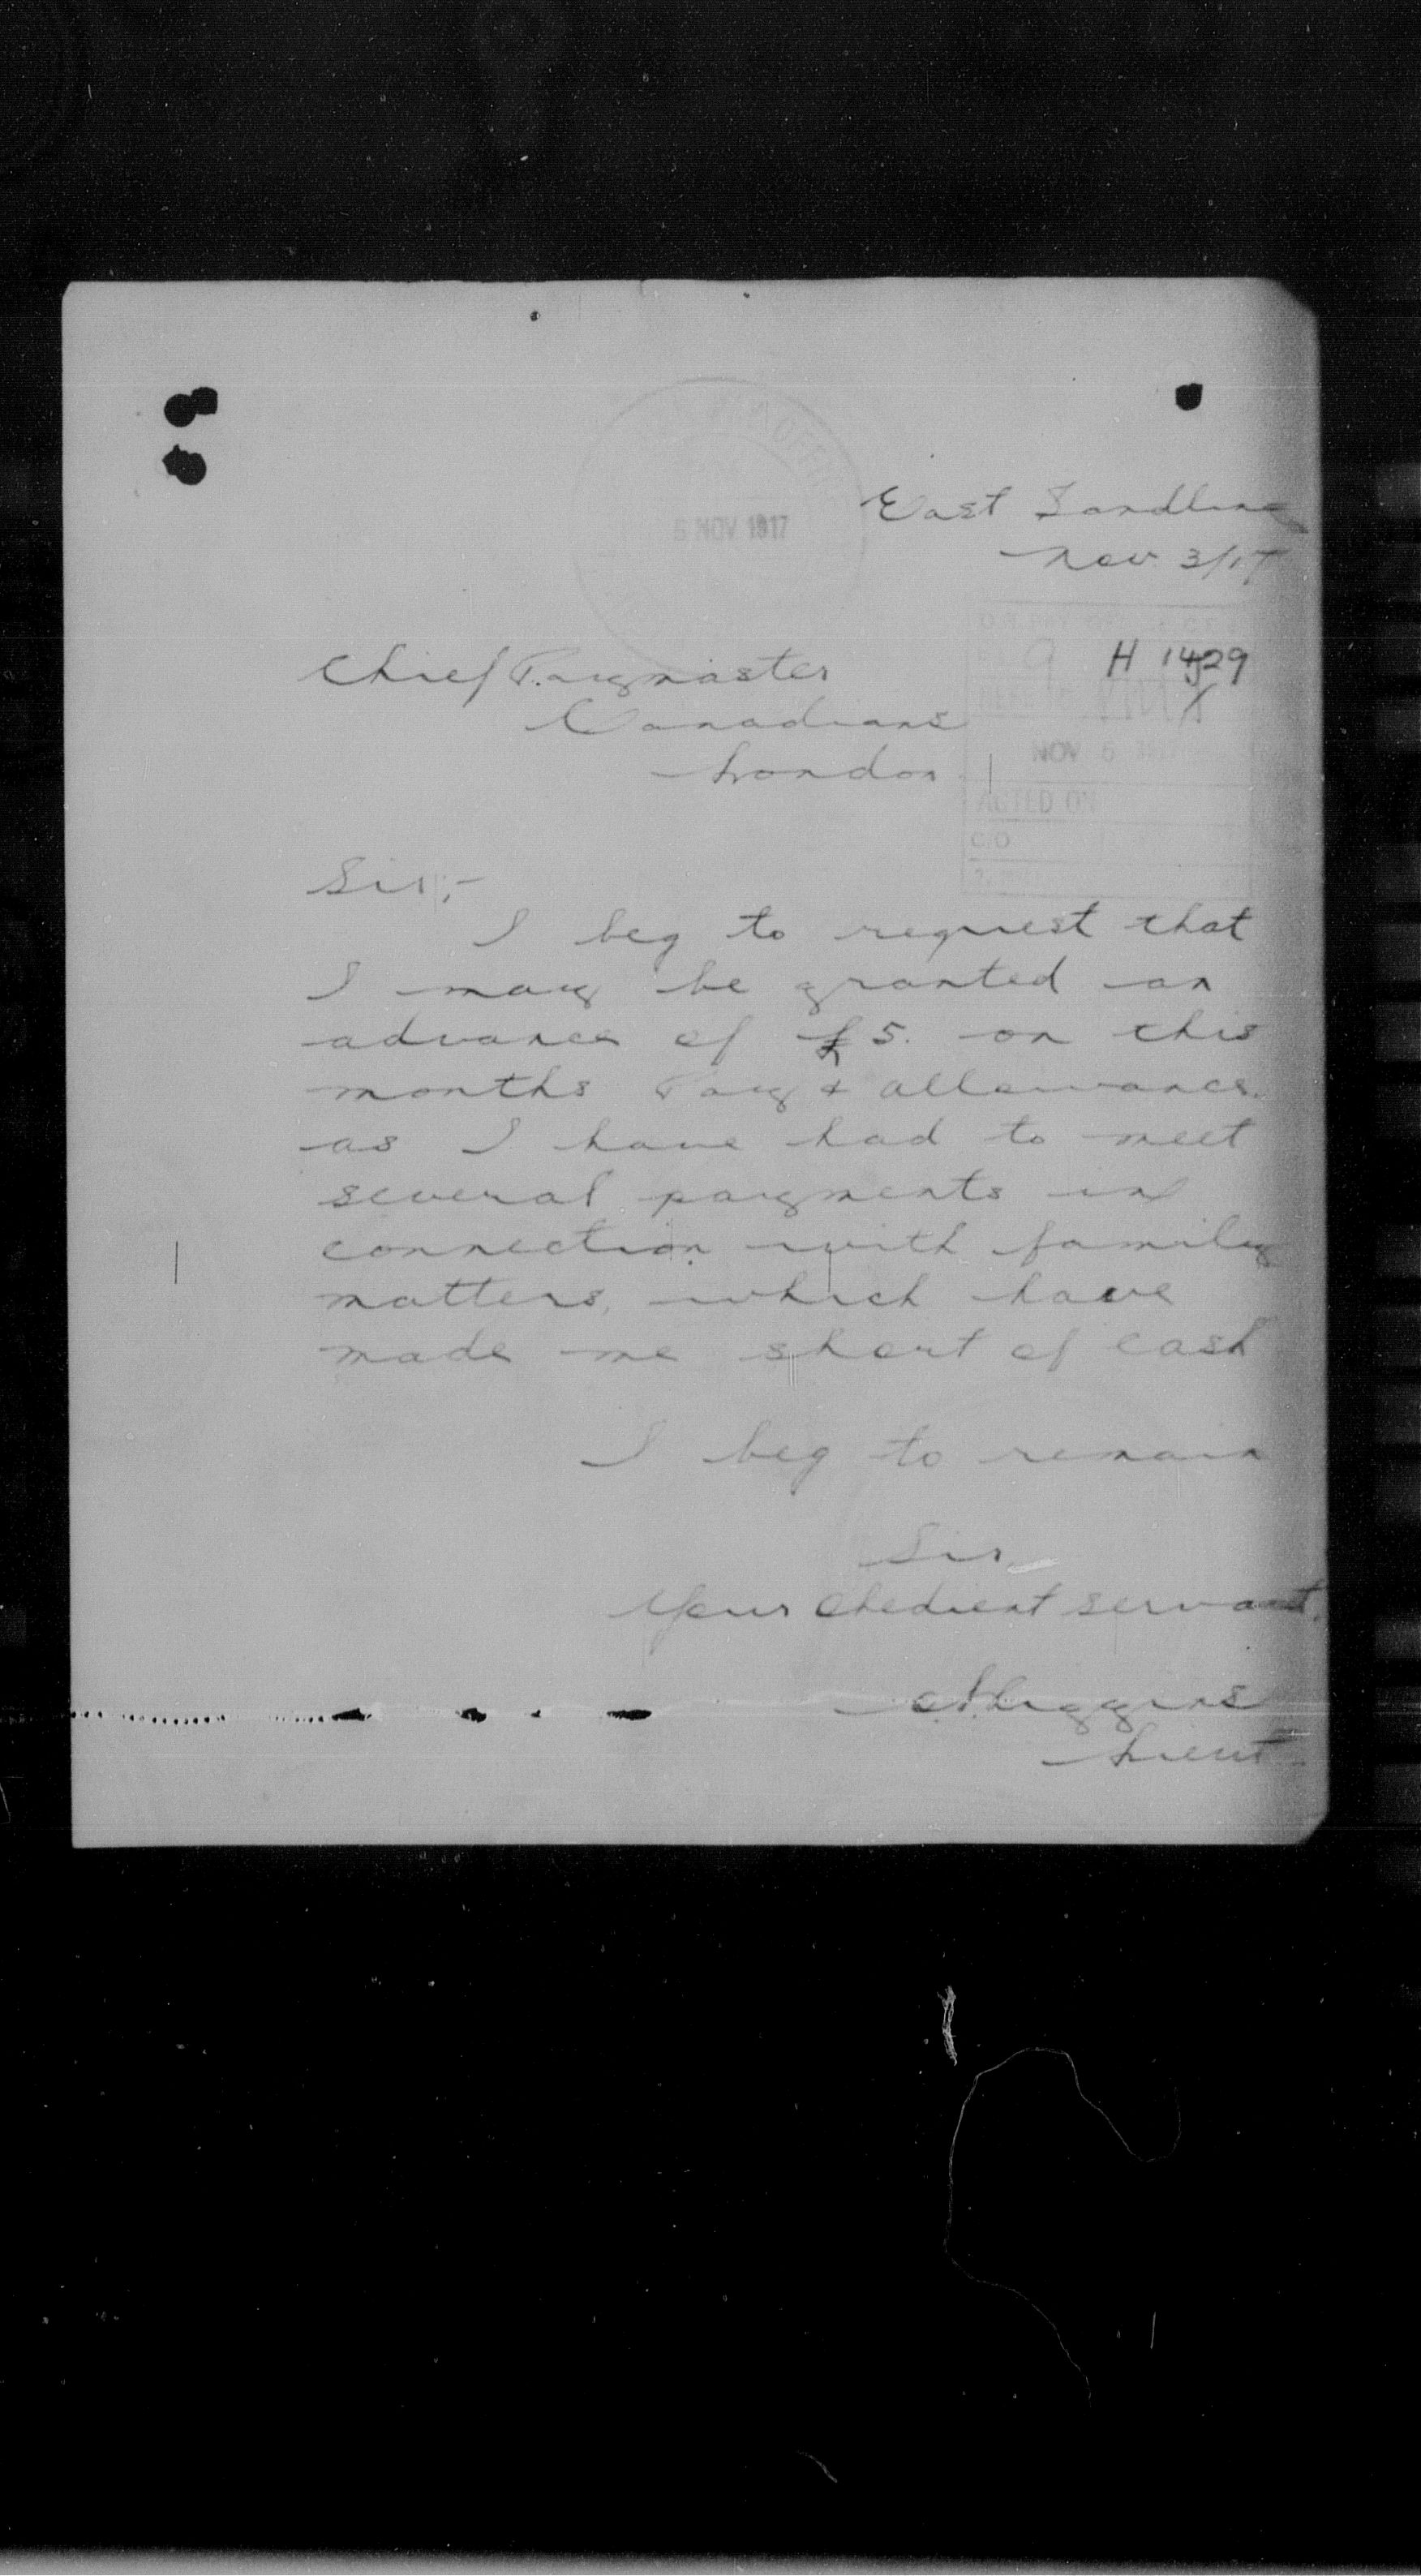 5 NOV 1917
East Sandling
Nov 3/17
H 1429
Chief Paymaster
Canadians
London
NOV 6
ACTED ON
C/O
Sir;-
I beg to request that
I may be granted an
advance of £5. on this
months Pay & allowance.
as I have had to meet
several payments in
connection with family
matters, which have
made me short of cash
I beg to remain
Sir
Your Obedient servant.
Higgins
Lieut.